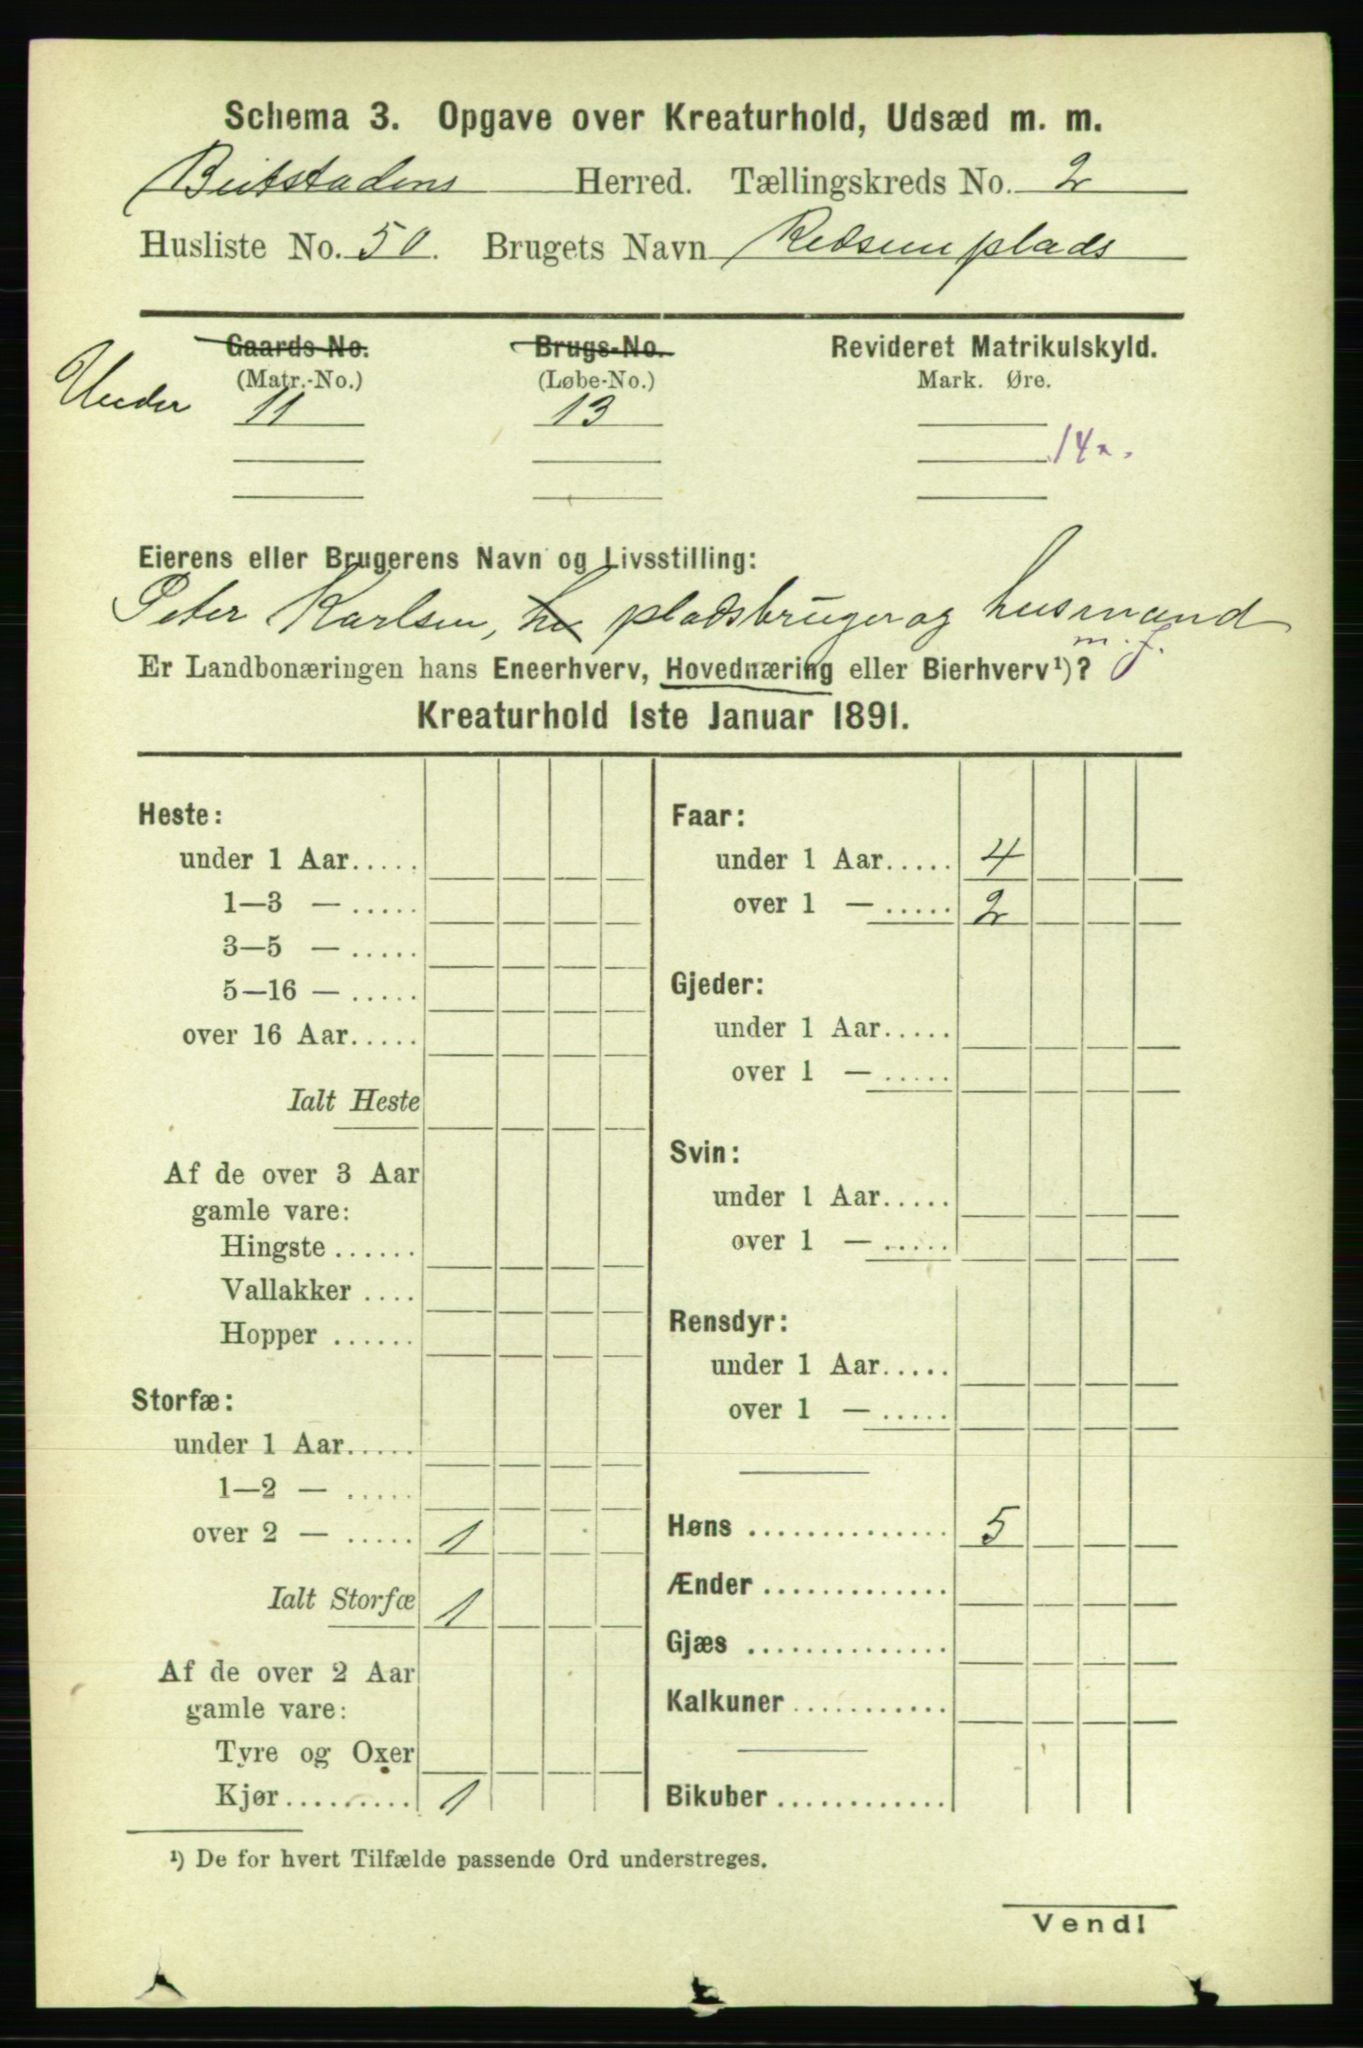 Schema 3. Opgave over Kreaturhold, Udsæd m. m.
Beitstadens Herred. Tællingskreds No. 2
Husliste No. 50. Brugets Navn Redsemplads
Gaards-No. Brugs-No. Revideret Matrikulskyld.
(Matr.-No.) (Løbe-No.) Mark. Øre.
Under 11 13
14
Eierens eller Brugerens Navn og Livsstilling:
Peter Karlsen, pladsbruger og husmand
m. j.
Er Landbonæringen hans Eneerhverv, Hovednæring eller Bierhverv¹)?
Kreaturhold 1ste Januar 1891.
Heste:
under 1 Aar.....
1—3 — .....
3—5 — .....
5—16 — .....
over 16 Aar.....
Ialt Heste
Af de over 3 Aar
gamle vare:
Hingste ......
Vallakker ....
Hopper ......
Storfæ:
under 1 Aar.....
1—2 — .....
over 2 — ..... 1
Ialt Storfæ 1
Af de over 2 Aar
gamle vare:
Tyre og Oxer
Kjør......... 1
Faar:
under 1 Aar..... 4
over 1 — ..... 2
Gjeder:
under 1 Aar.....
over 1 — .....
Svin:
under 1 Aar.....
over 1 — .....
Rensdyr:
under 1 Aar.....
over 1 — .....
Høns .............. 5
Ænder .............
Gjæs ..............
Kalkuner ...........
Bikuber ............
¹) De for hvert Tilfælde passende Ord understreges.
Vend!